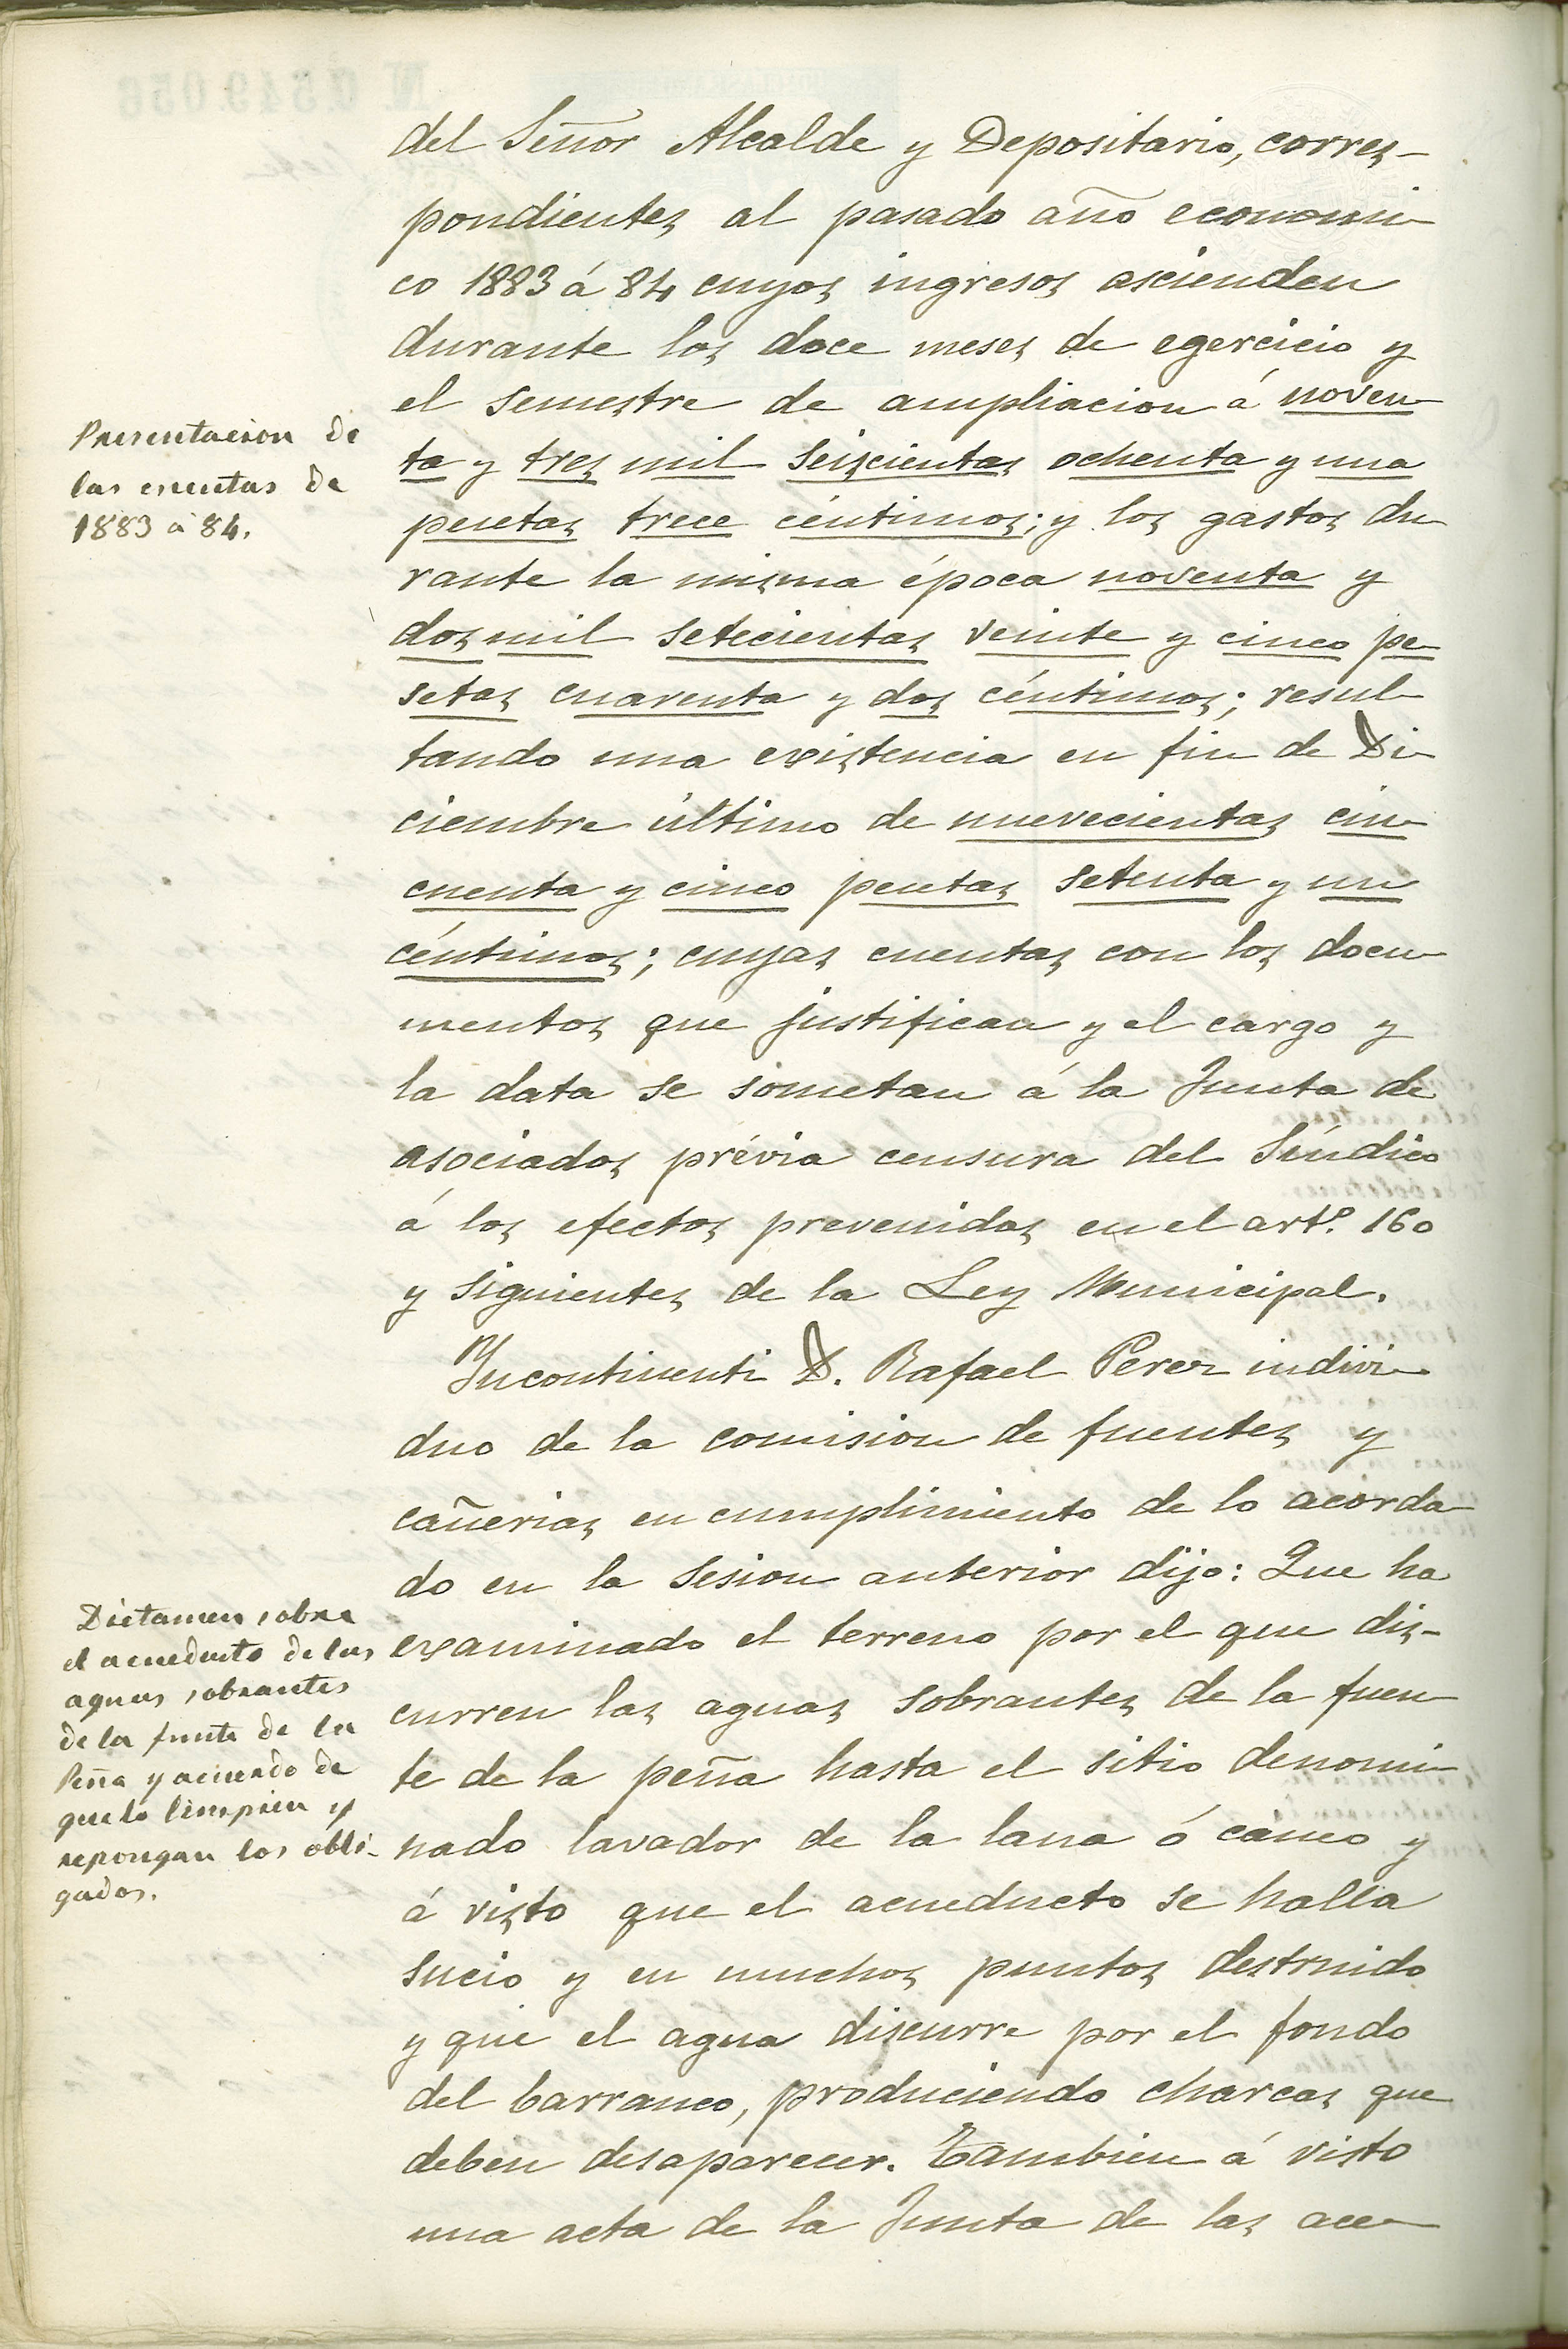 del Señor Alcalde y Depositario, corres-
pondientes al pasado año economi-
co 1883 á 84 cuyos ingresos ascienden
durante los doce meses de egercicio y
el semestre de ampliacion á noven-
ta y tres mil seiscientas ochenta y una
pesetas trece céntimos; y los gastos du-
rante la misma época noventa y
dos mil setecientas veinte y cinco pe-
setas cuarenta y dos céntimos; resul-
tando una existencia en fin de Di-
ciembre último de nuevecientas cin-
cuenta y cinco pesetas setenta y un
céntimos; cuyas cuentas con los docu-
mentos que justifican y el cargo y
la data se sometan á la Junta de
asociados prévia censura del Síndico
á los efectos prevenidos en el artº. 160
y siguientes de la Ley Municipal.
Yncontinenti D. Rafael Perez indivi-
duo de la comision de fuentes y
cañerias en cumplimiento de lo acorda-
do en la sesion anterior dijo: Que ha
examinado el terreno por el que dis-
curren las aguas sobrantes de la fuen-
te de la peña hasta el sitio denomi-
nado lavador de la lana ó cáneo y
á visto que el acueducto se halla
sucio y en muchos puntos destruido
y que el agua discurre por el fondo
del barranco, produciendo charcas que
deben desaparecer. Tambien á visto
una acta de la Junta de las ace-
Presentacion de
las cuentas de
1883 á 84.
Dictamen sobre
el acueducto de las
aguas sobrantes
de la fuente de la
Peña y acuerdo de
que lo limpien y
repongan los obli-
gados.
Nº 0.549.056